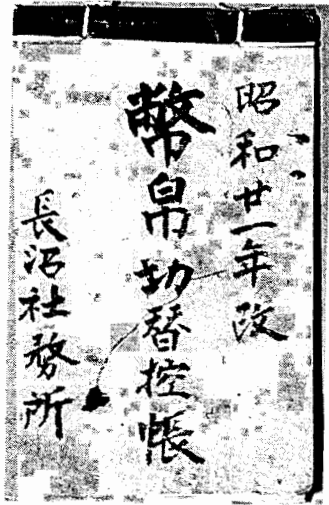 昭和廿一年改
幣帛切替控帳
長沼社務所